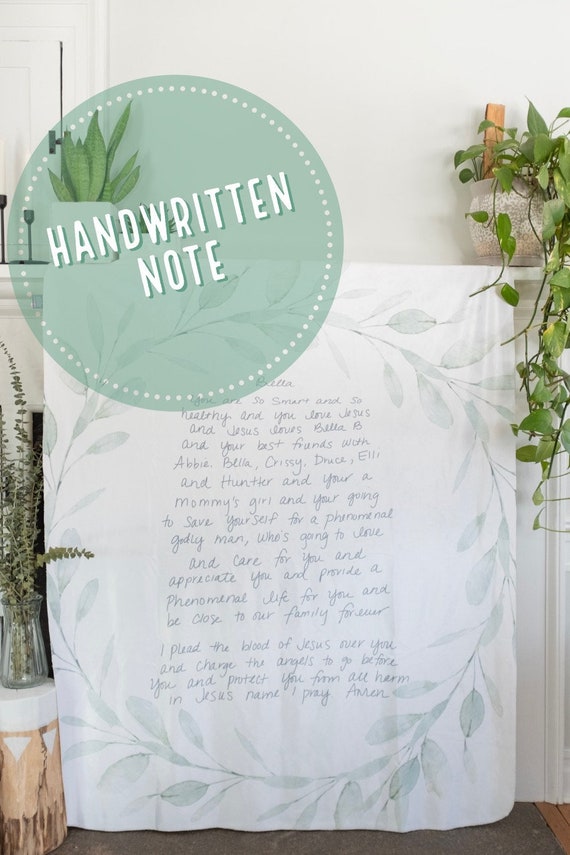 HANDWRITTEN
NOTE
Bella
You are so smart and so
healthy and you love Jesus
and Jesus loves Bella B
and your best friends with
Abbie, Bella, Crissy, Druce, Elli
and Huntter and your a
mommy's girl and your going
to save yourself for a phenomenal
godly man, who's going to love
and care for you and
appreciate you and provide a
phenomenal life for you and
be close to our family forever
I plead the blood of Jesus over you
and charge the angels to go before
you and protect you from all harm
in Jesus name I pray Amen